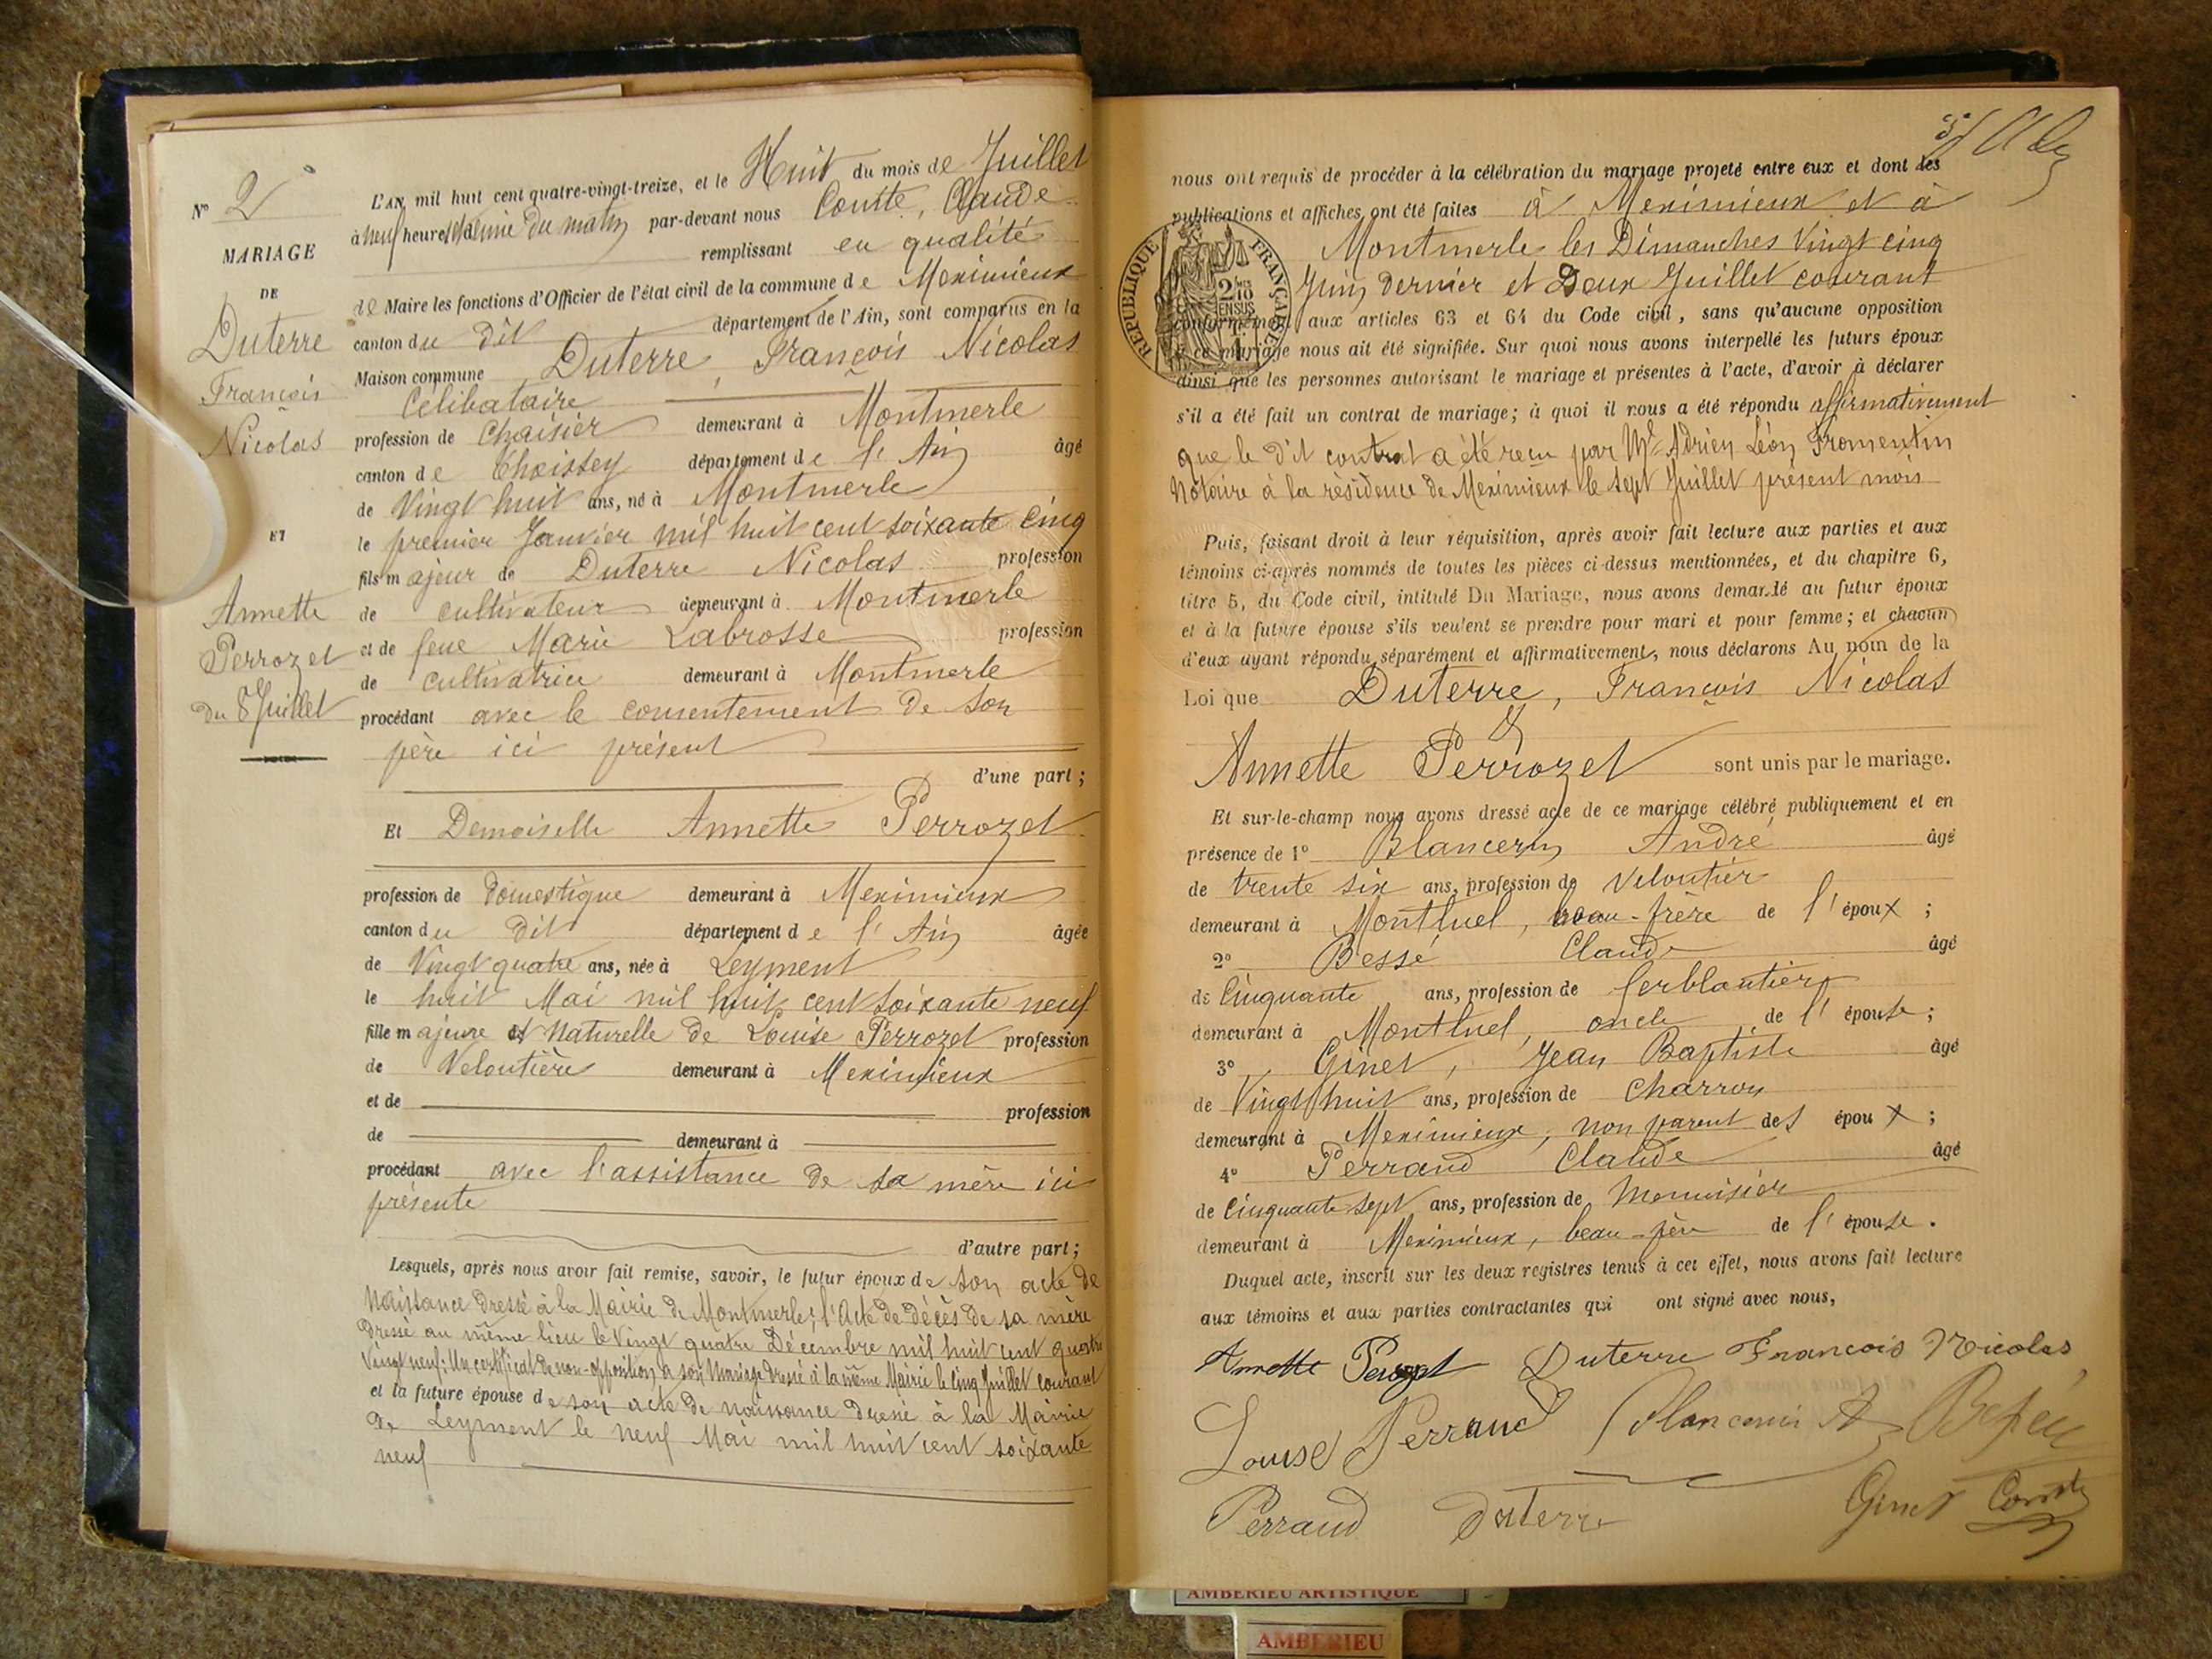 N° 2
MARIAGE
DE
Duterre
François
Nicolas
ET
Annette
Perrozet
du 8 Juillet
L'AN mil huit cent quatre-vingt-treize, et le Huit du mois de Juillet
à neuf heures et demie du matin par-devant nous Coutte, Claude
remplissant en qualité
de Maire les fonctions d'Officier de l'état civil de la commune de Meximieux
canton du dit département de l'Ain, sont comparus en la
Maison commune Duterre, François Nicolas
Célibataire
profession de Chaisier demeurant à Montmerle
canton de Thoissey département de l'Ain âgé
de Vingt huit ans, né à Montmerle
le premier Janvier mil huit cent soixante cinq
fils majeur de Duterre Nicolas profession
de cultivateur demeurant à Montmerle
et de feue Marie Labrosse profession
de cultivatrice demeurant à Montmerle
procédant avec le consentement de son
père ici présent
d'une part ;
Et Demoiselle Annette Perrozet
profession de domestique demeurant à Meximieux
canton du dit département de l'Ain âgée
de Vingt quatre ans, née à Leyment
le huit Mai mil huit cent soixante neuf
fille majeure et Naturelle de Louise Perrozet profession
de Veloutière demeurant à Meximieux
et de profession
de demeurant à
procédant avec l'assistance de sa mère ici
présente
d'autre part ;
Lesquels, après nous avoir fait remise, savoir, le futur époux de son acte de
Naissance dressé à la Mairie de Montmerle ; l'Acte de décès de sa mère
dressé au même lieu le Vingt quatre Décembre mil huit cent quatre
Vingt neuf : Un certificat de non-opposition à son Mariage dressé à la même Mairie le cinq Juillet courant
et la future épouse de son acte de naissance dressé à la Mairie
de Leyment le neuf Mai mil huit cent soixante
neuf
nous ont requis de procéder à la célébration du mariage projeté entre eux et dont des
publications et affiches ont été faites à Meximieux et à
Montmerle les Dimanches Vingt cinq
Juin dernier et Deux Juillet courant
conformément aux articles 63 et 64 du Code civil, sans qu'aucune opposition
à ce mariage nous ait été signifiée. Sur quoi nous avons interpellé les futurs époux
ainsi que les personnes autorisant le mariage et présentes à l'acte, d'avoir à déclarer
s'il a été fait un contrat de mariage ; à quoi il nous a été répondu affirmativement
que le dit contrat a été reçu par Me Adrien Léon Fromentin
Notaire à la résidence de Meximieux le sept Juillet présent mois
REPUBLIQUE FRANÇAISE
2/10 EN SUS
Puis, faisant droit à leur réquisition, après avoir fait lecture aux parties et aux
témoins ci-après nommés de toutes les pièces ci-dessus mentionnées, et du chapitre 6,
titre 5, du Code civil, intitulé Du Mariage, nous avons demandé au futur époux
et à la future épouse s'ils veulent se prendre pour mari et pour femme ; et chacun
d'eux ayant répondu séparément et affirmativement, nous déclarons Au nom de la
Loi que Duterre, François Nicolas
&
Annette Perrozet sont unis par le mariage.
Et sur-le-champ nous avons dressé acte de ce mariage célébré publiquement et en
présence de 1° Blancerin André âgé
de trente six ans, profession de Veloutier
demeurant à Montluel, beau-frère de l'époux ;
2° Bessé Claude âgé
de Cinquante ans, profession de ferblantier
demeurant à Montluel, oncle de l'épouse ;
3° Ginet, Jean Baptiste âgé
de Vingt huit ans, profession de Charron
demeurant à Meximieux, non parent des époux ;
4° Perraud Claude âgé
de Cinquante sept ans, profession de Menuisier
demeurant à Meximieux, beau-père de l'épouse.
Duquel acte, inscrit sur les deux registres tenus à cet effet, nous avons fait lecture
aux témoins et aux parties contractantes qui ont signé avec nous,
Annette Perrozet Duterre Francois Nicolas
Louise Perraud Blancerin A
Perraud Duterre Ginet Coutte
AMBERIEU ARTISTIQUE
AMBERIEU